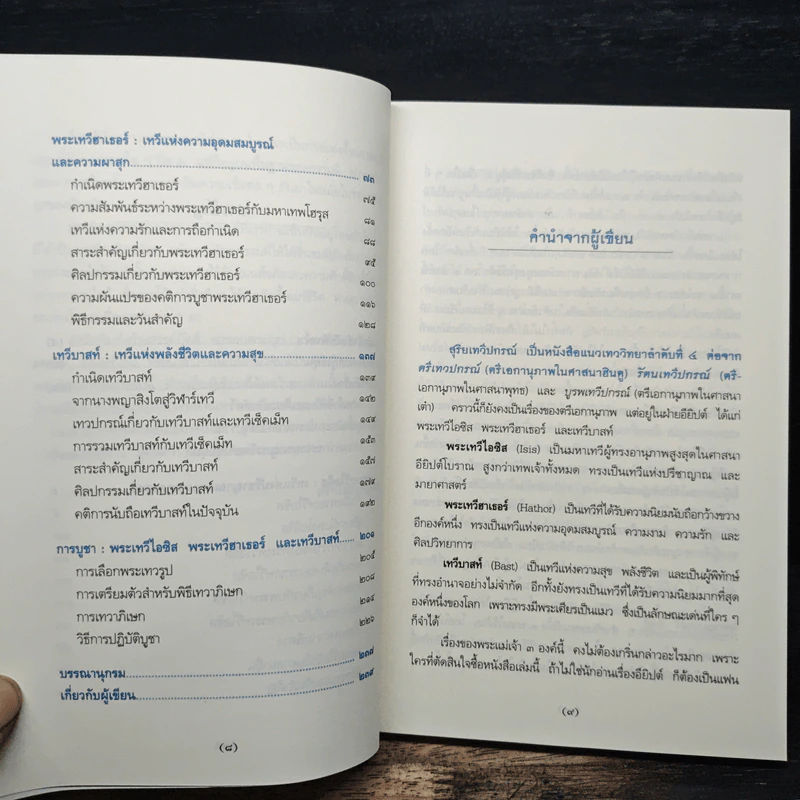 พระเทวีฮาเธอร์ : เทวีแห่งความอุดมสมบูรณ์
และความผาสุก........................................................ ๗๓
กำเนิดพระเทวีฮาเธอร์ ๗๕
ความสัมพันธ์ระหว่างพระเทวีฮาเธอร์กับมหาเทพโฮรุส ๘๑
เทวีแห่งความรักและการถือกำเนิด ๘๘
สาระสำคัญเกี่ยวกับพระเทวีฮาเธอร์ ๙๕
ศิลปกรรมเกี่ยวกับพระเทวีฮาเธอร์ ๑๐๐
ความผันแปรของคติการบูชาพระเทวีฮาเธอร์ ๑๑๖
พิธีกรรมและวันสำคัญ ๑๒๘
เทวีบาสท์ : เทวีแห่งพลังชีวิตและความสุข.................... ๑๓๗
กำเนิดเทวีบาสท์ ๑๓๙
จากนางพญาสิงโตสู่วิฬาร์เทวี ๑๔๒
เทวปกรณ์เกี่ยวกับเทวีบาสท์และเทวีเซ็คเม็ท ๑๔๙
การรวมเทวีบาสท์กับเทวีเซ็คเม็ท ๑๕๓
สาระสำคัญเกี่ยวกับเทวีบาสท์ ๑๕๗
ศิลปกรรมเกี่ยวกับเทวีบาสท์ ๑๗๙
คติการนับถือเทวีบาสท์ในปัจจุบัน ๑๙๒
การบูชา : พระเทวีไอซิส พระเทวีฮาเธอร์ และเทวีบาสท์..... ๒๐๑
การเลือกพระเทวรูป ๒๐๕
การเตรียมตัวสำหรับพิธีเทวาภิเษก ๒๐๘
การเทวาภิเษก ๒๑๔
วิธีการปฏิบัติบูชา ๒๒๖
บรรณานุกรม........................................................ ๒๓๗
เกี่ยวกับผู้เขียน.................................................... ๒๓๙
(๘)
คำนำจากผู้เขียน
สุริยเทวีปกรณ์ เป็นหนังสือแนวเทววิทยาลำดับที่ ๔ ต่อจาก
ตรีเทวปกรณ์ (ตรีเอกานุภาพในศาสนาฮินดู) รัตนเทวีปกรณ์ (ตรี-
เอกานุภาพในศาสนาพุทธ) และ บูรพเทวีปกรณ์ (ตรีเอกานุภาพในศาสนา
เต๋า) คราวนี้ก็ยังคงเป็นเรื่องของตรีเอกานุภาพ แต่อยู่ในฝ่ายอียิปต์ ได้แก่
พระเทวีไอซิส พระเทวีฮาเธอร์ และเทวีบาสท์
พระเทวีไอซิส (Isis) เป็นมหาเทวีผู้ทรงอานุภาพสูงสุดในศาสนา
อียิปต์โบราณ สูงกว่าเทพเจ้าทั้งหมด ทรงเป็นเทวีแห่งปรีชาญาณ และ
มายาศาสตร์
พระเทวีฮาเธอร์ (Hathor) เป็นเทวีที่ได้รับความนิยมนับถือกว้างขวาง
อีกองค์หนึ่ง ทรงเป็นเทวีแห่งความอุดมสมบูรณ์ ความงาม ความรัก และ
ศิลปวิทยาการ
เทวีบาสท์ (Bast) เป็นเทวีแห่งความสุข พลังชีวิต และเป็นผู้พิทักษ์
ที่ทรงอำนาจอย่างไม่จำกัด อีกทั้งยังทรงเป็นเทวีที่ได้รับความนิยมมากที่สุด
องค์หนึ่งของโลก เพราะทรงมีพระเศียรเป็นแมว ซึ่งเป็นลักษณะเด่นที่ใคร ๆ
ก็จำได้
เรื่องของพระแม่เจ้า ๓ องค์นี้ คงไม่ต้องเกริ่นกล่าวอะไรมาก เพราะ
ใครที่ตัดสินใจซื้อหนังสือเล่มนี้ ถ้าไม่ใช่นักอ่านเรื่องอียิปต์ ก็ต้องเป็นแฟน
(๙)